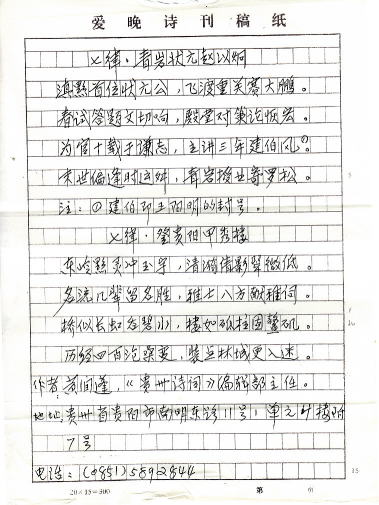 爱晚诗刊稿纸
七律·青岩状元赵以炯
滇黔首位状元公，飞渡重关赛大鹏。
春试答题文切响，殿堂对策论恢宏。
为官十载于谦志，主讲三年建伯风①。
末世偏逢时运舛，青岩授业寄罗松。
注：①建伯即王阳明的封号。
七律·登贵阳甲秀楼
东岭黔灵冲玉宇，清流倩影翠微低。
名流几辈留名胜，雅士八方献雅词。
桥似长虹吞碧水，楼如砥柱固鳌矶。
历经四百沧桑变，装点林城更入迷。
作者：黄 《贵州诗词》编辑部主任。
地址：贵州省贵阳市南明东路11号1单元 楼附
7号
电话：(0851)5892844
20×15=300 第 页
15